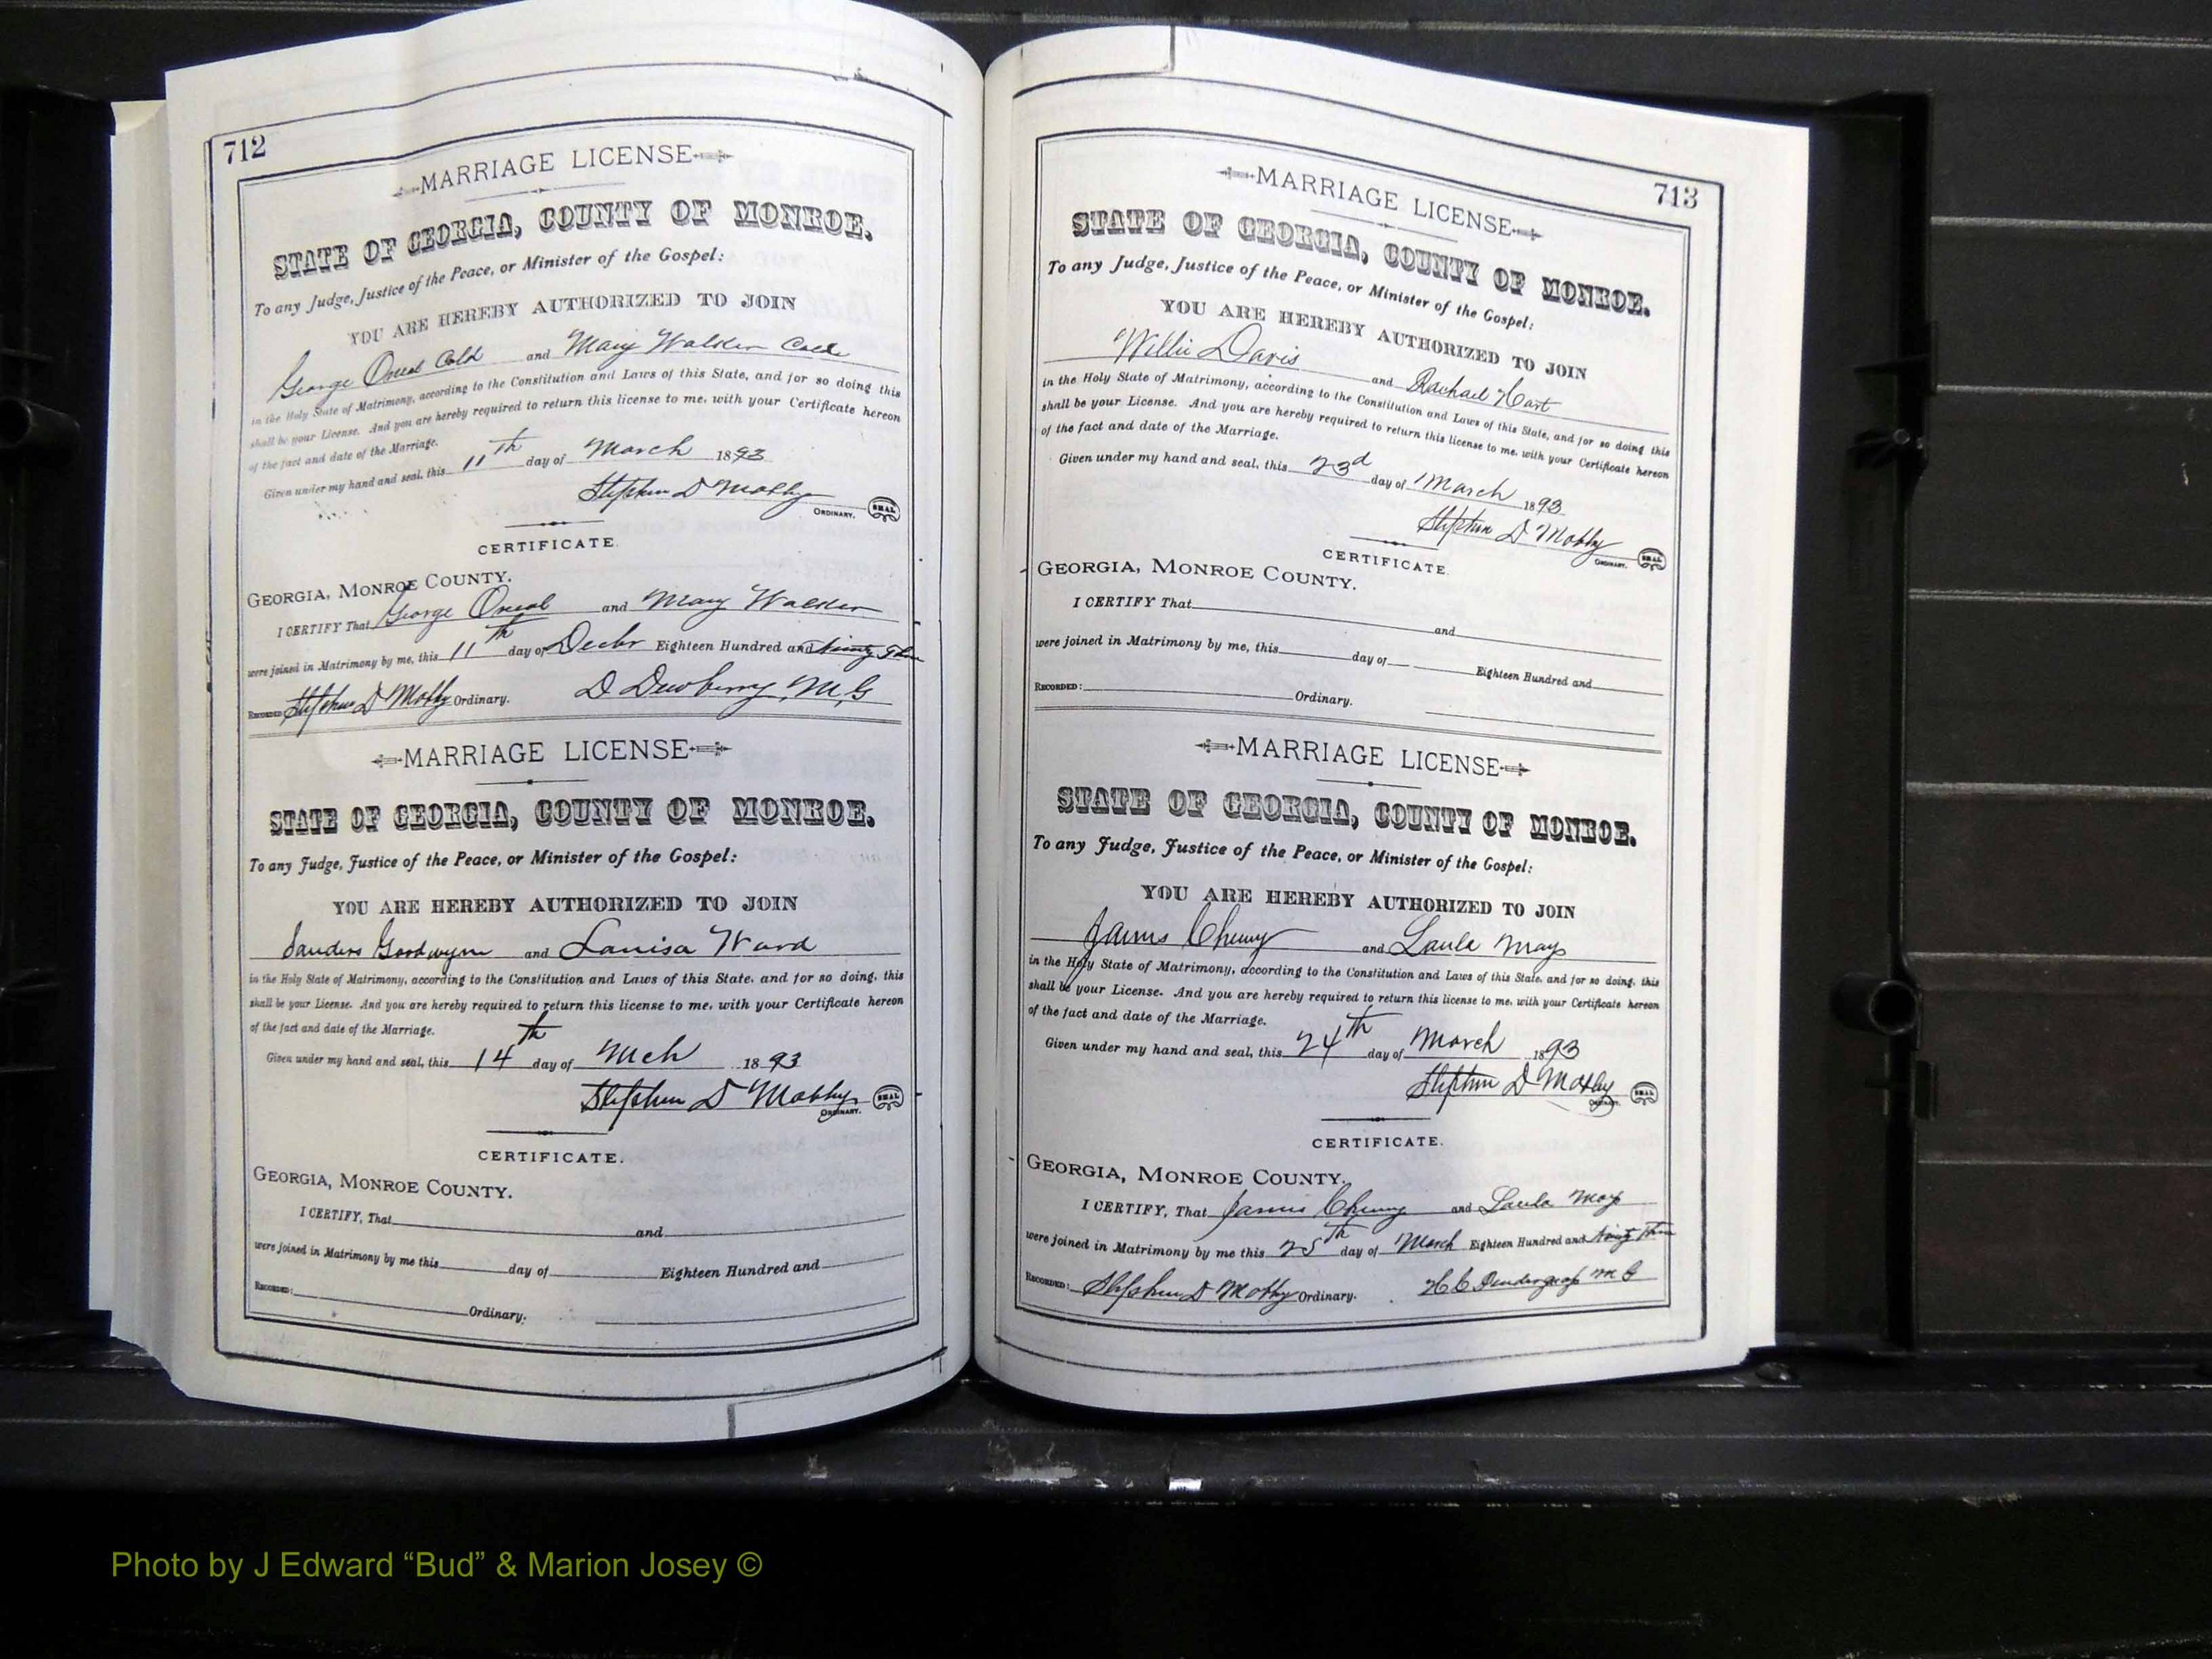 712
MARRIAGE LICENSE
STATE OF GEORGIA, COUNTY OF MONROE.
To any Judge, Justice of the Peace, or Minister of the Gospel:
YOU ARE HEREBY AUTHORIZED TO JOIN
George Oneal Cold and Mary Walker Cold
in the Holy State of Matrimony, according to the Constitution and Laws of this State, and for so doing this
shall be your License. And you are hereby required to return this license to me, with your Certificate hereon
of the fact and date of the Marriage.
Given under my hand and seal, this 11th day of March 1893
Stephen D Mobby
ORDINARY. SEAL
CERTIFICATE.
GEORGIA, MONROE COUNTY.
I CERTIFY That George Oneal and Mary Walker
were joined in Matrimony by me, this 11th day of Decbr Eighteen Hundred and Ninty Three
RECORDED: Stephen D Mobby Ordinary. D Dewberry, M,G
MARRIAGE LICENSE
STATE OF GEORGIA, COUNTY OF MONROE.
To any Judge, Justice of the Peace, or Minister of the Gospel:
YOU ARE HEREBY AUTHORIZED TO JOIN
Sanders Goodwynn and Louisa Ward
in the Holy State of Matrimony, according to the Constitution and Laws of this State, and for so doing, this
shall be your License. And you are hereby required to return this license to me, with your Certificate hereon
of the fact and date of the Marriage.
Given under my hand and seal, this 14th day of Mch 1893
Stephen D Mobby
ORDINARY. SEAL
CERTIFICATE.
GEORGIA, MONROE COUNTY.
I CERTIFY, That and
were joined in Matrimony by me this day of Eighteen Hundred and
RECORDED: Ordinary.
713
MARRIAGE LICENSE
STATE OF GEORGIA, COUNTY OF MONROE.
To any Judge, Justice of the Peace, or Minister of the Gospel:
YOU ARE HEREBY AUTHORIZED TO JOIN
Willie Davis and Rachael Hart
in the Holy State of Matrimony, according to the Constitution and Laws of this State, and for so doing this
shall be your License. And you are hereby required to return this license to me, with your Certificate hereon
of the fact and date of the Marriage.
Given under my hand and seal, this 23d day of March 1893
Stephen D Mobby
ORDINARY. SEAL
CERTIFICATE.
GEORGIA, MONROE COUNTY.
I CERTIFY That and
were joined in Matrimony by me, this day of Eighteen Hundred and
RECORDED: Ordinary.
MARRIAGE LICENSE
STATE OF GEORGIA, COUNTY OF MONROE.
To any Judge, Justice of the Peace, or Minister of the Gospel:
YOU ARE HEREBY AUTHORIZED TO JOIN
James Cheny and Laula Mays
in the Holy State of Matrimony, according to the Constitution and Laws of this State, and for so doing, this
shall be your License. And you are hereby required to return this license to me, with your Certificate hereon
of the fact and date of the Marriage.
Given under my hand and seal, this 24th day of March 1893
Stephen D Mobby
ORDINARY. SEAL
CERTIFICATE.
GEORGIA, MONROE COUNTY.
I CERTIFY, That James Cheny and Laula Mays
were joined in Matrimony by me this 25th day of March Eighteen Hundred and Ninty Three
RECORDED: Stephen D Mobby Ordinary. H C Pendergrap M G
Photo by J Edward “Bud” & Marion Josey ©